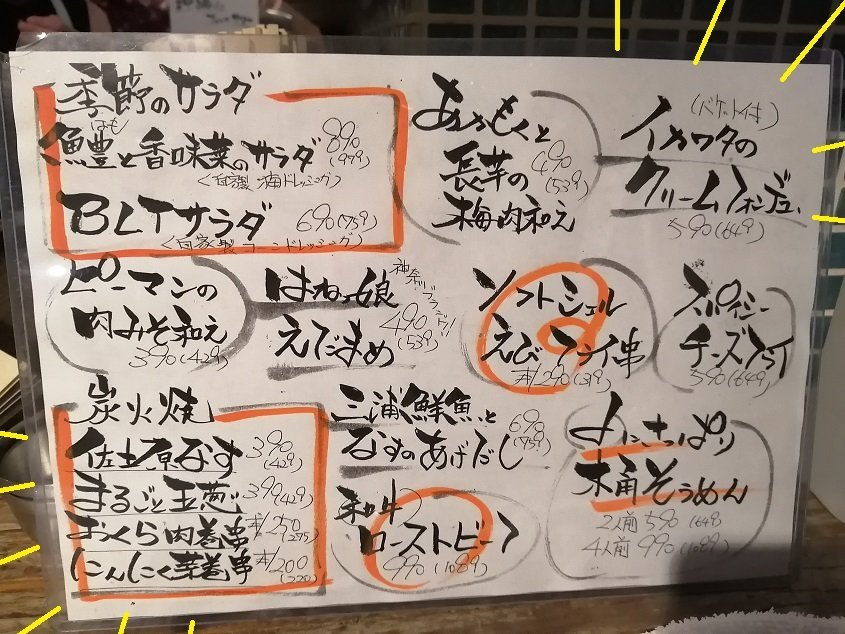 季節のサラダ
はも
鱧と香味菜のサラダ 890 (979)
<自家製 梅ドレッシング>
BLTサラダ 690(759)
<自家製コーンドレッシング>
あかもくと
長芋の 490 (539)
梅肉和え
(バケット付)
イカワタの
クリームフォンデュ
590(649)
ピーマンの
肉みそ和え
390(429)
はねっ娘
えだまめ 490 (539)
ソフトシェル
えびフライ串
本/290(319)
スパイシー
チーズフライ
590(649)
炭火焼
佐土原なす 390 (429)
まるごと玉葱 390(429)
おくら肉巻串 本/250 (275)
にんにく芽巻串 本/200 (220)
三浦鮮魚と
なすのあげだし 690 (759)
和牛
ローストビーフ
990(1089)
木桶そうめん
2人前 590(649)
4人前 990(1089)